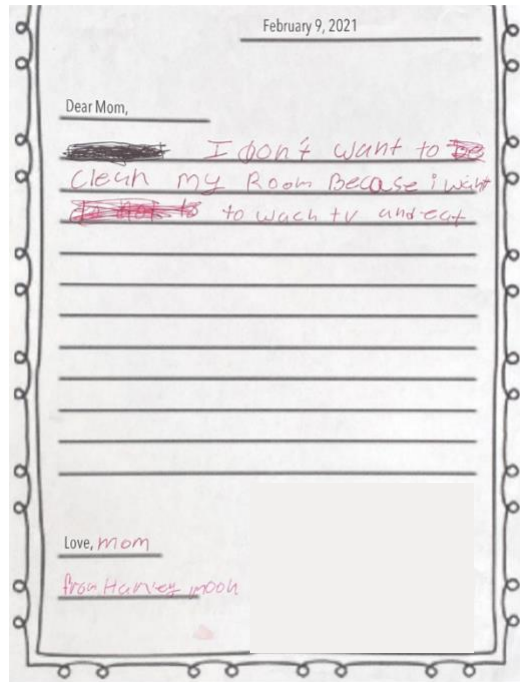 February 9, 2021
Dear Mom,
I don't want to
clean my Room Becase i want
to wach tv and eat
Love, mom
from Harvey moon